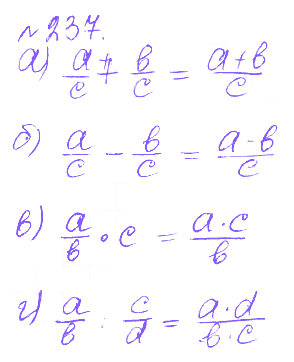 №237.
а) a/c + b/c = a+b/c
б) a/c - b/c = a-b/c
в) a/b • c = a·c/b
г) a/b : c/d = a·d/b·c